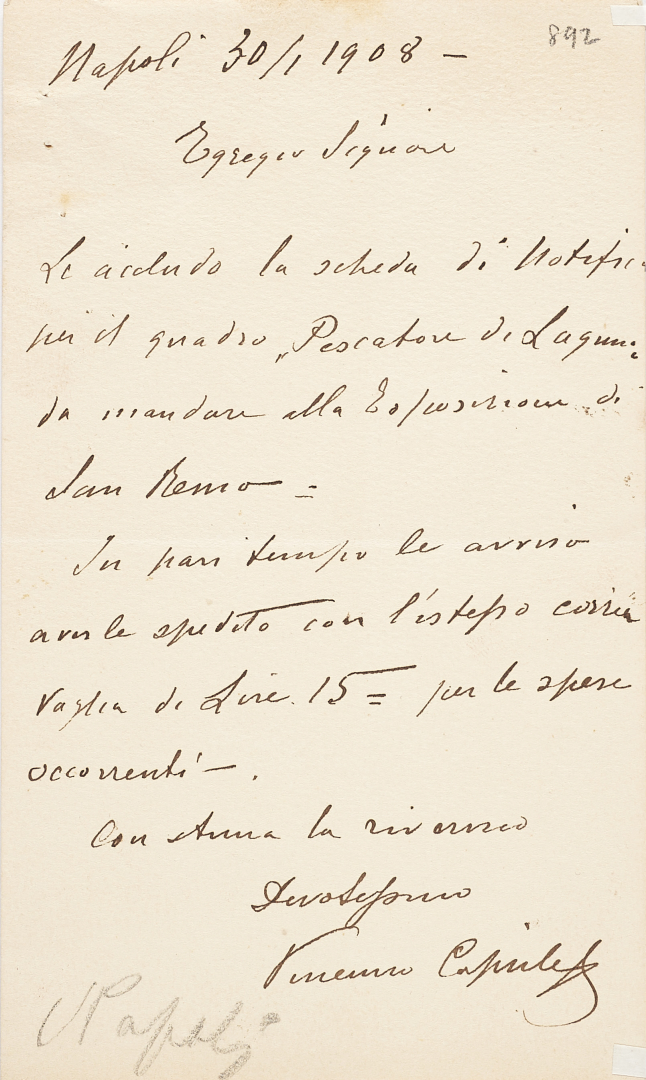 892
Napoli 30/1 1908 —
Egregio Signore
Le accludo la scheda di Notifica
per il quadro „Pescatore di Laguna
da mandare alla Esposizione di
San Remo =
In pari tempo le avviso
averle spedito con l'istesso corriere
vaglia di Lire 15 = per le spese
occorrenti — .
Con stima la riverisco
Devotessimo
Vincenzo
Napoli